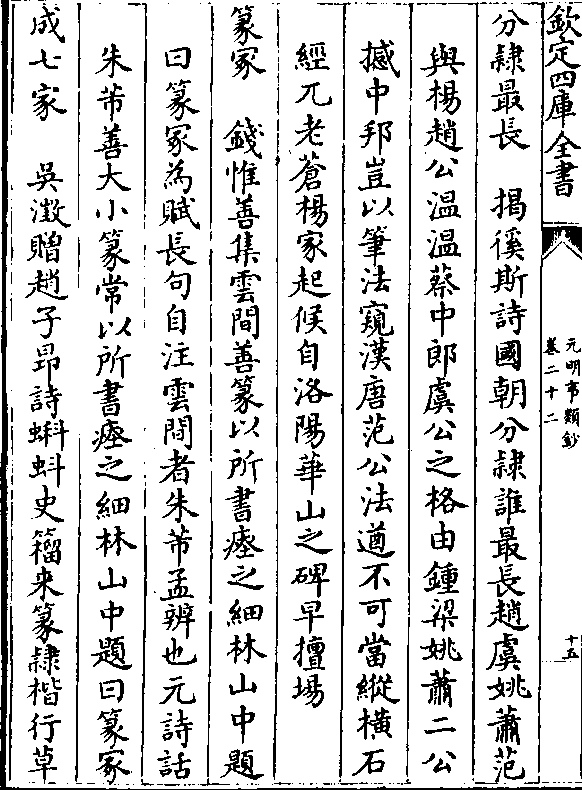 欽定四庫全書
元明事類鈔
卷二十二
十五
分隸最長　揭徯斯詩國朝分隸誰最長趙虞姚蕭范
與楊趙公温温蔡中郎虞公之格由鍾梁姚蕭二公
撼中邦豈以筆法窺漢唐范公法遒不可當縱橫石
經兀老蒼楊家起候自洛陽華山之碑早擅場
篆冡　錢惟善集雲間善篆以所書瘞之細林山中題
曰篆冡為賦長句自注雲間者朱芾孟辨也元詩話
朱芾善大小篆常以所書瘞之細林山中題曰篆冡
成七家　吳澂贈趙子昂詩蝌蚪史籀来篆隸楷行草